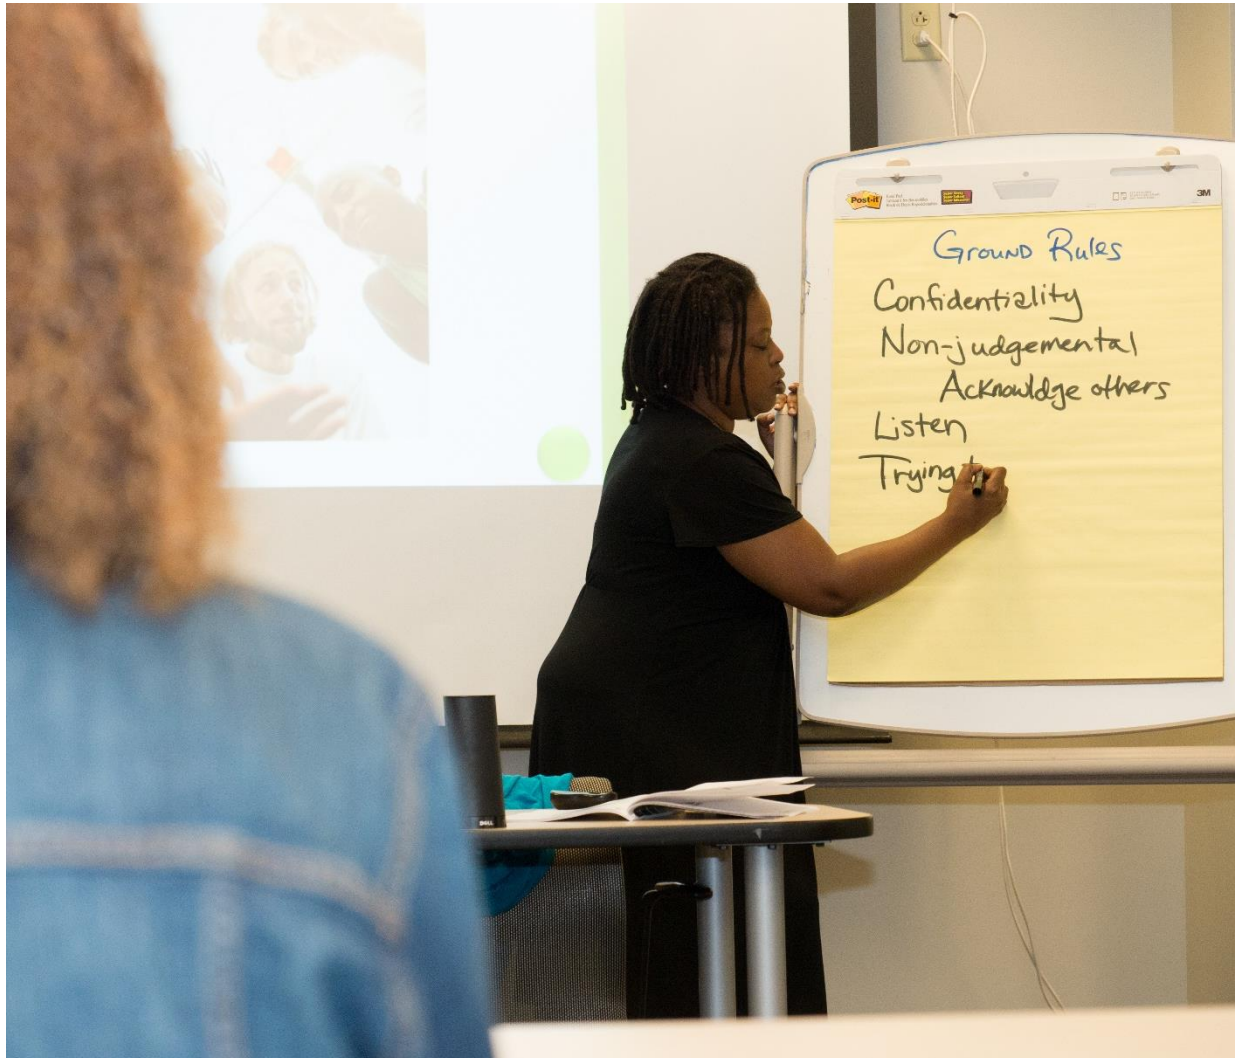 Post-it
3M
Ground Rules
Confidentiality
Non-judgemental
Acknowldge others
Listen
Trying
DELL